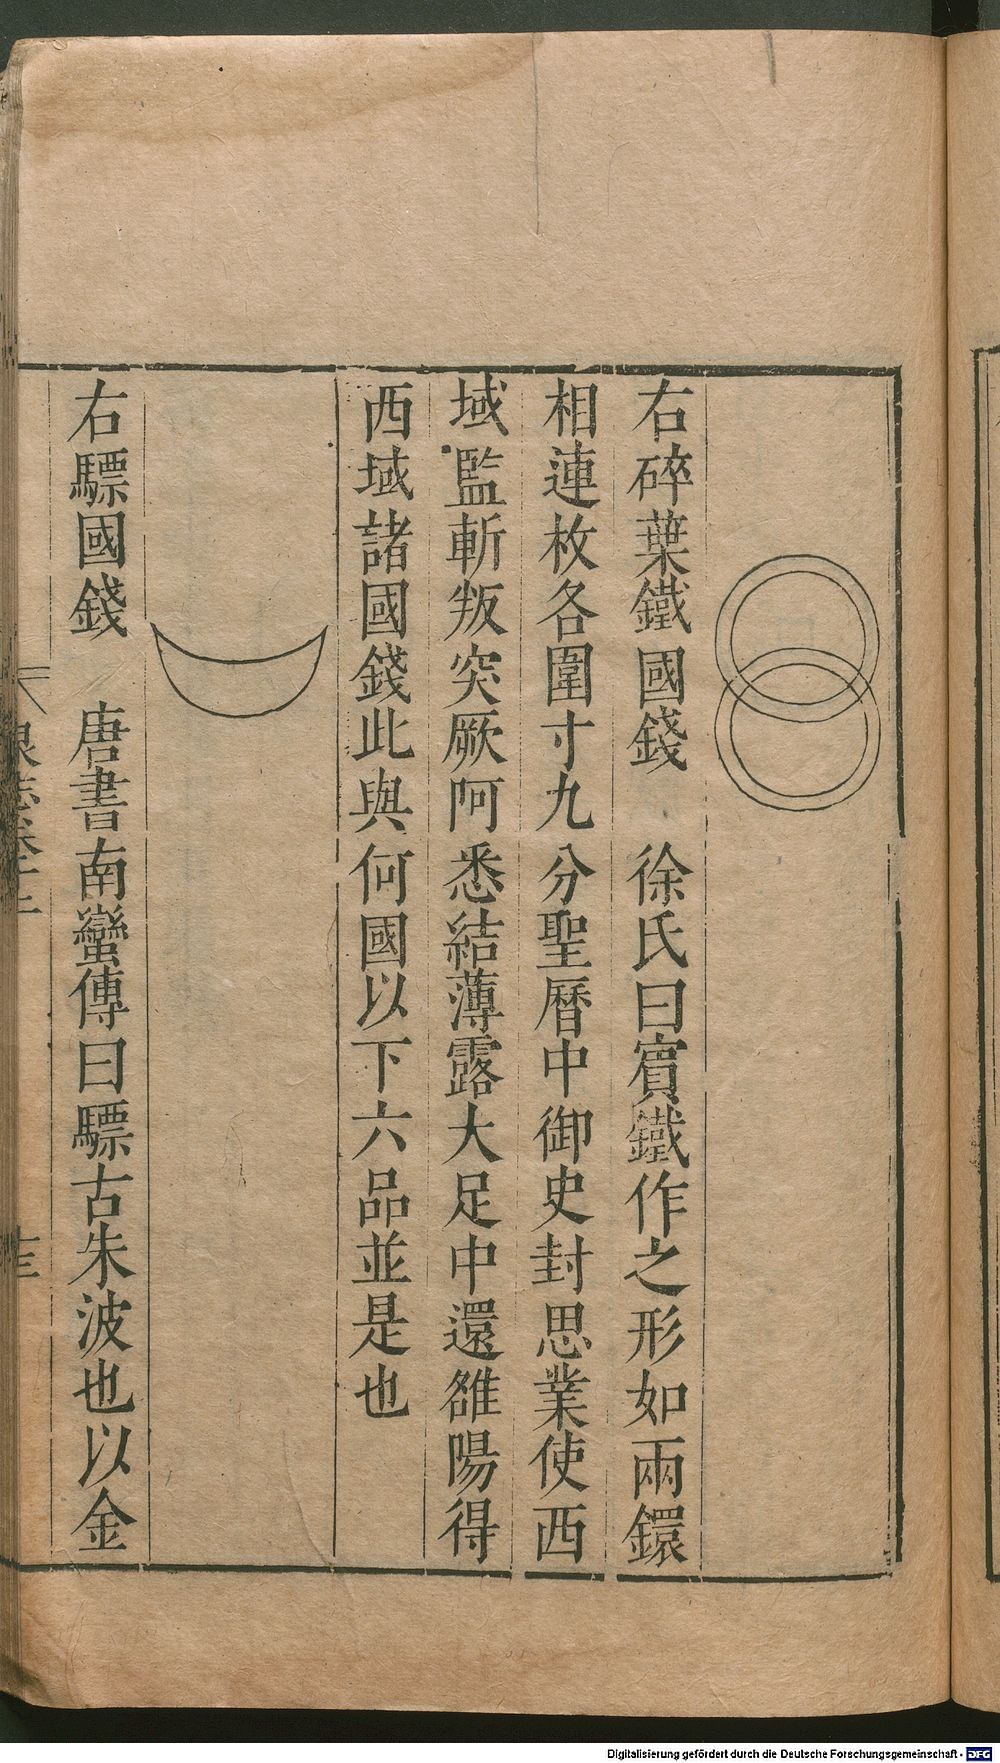 右碎葉鐵國錢　徐氏曰賓鐵作之形如兩鐶
相連枚各圍寸九分聖曆中御史封思業使西
域監斬叛突厥阿悉結薄露大足中還雒陽得
西域諸國錢此與何國以下六品並是也
右驃國錢　唐書南蠻傳曰驃古朱波也以金
Digitalisierung gefördert durch die Deutsche Forschungsgemeinschaft - DFG